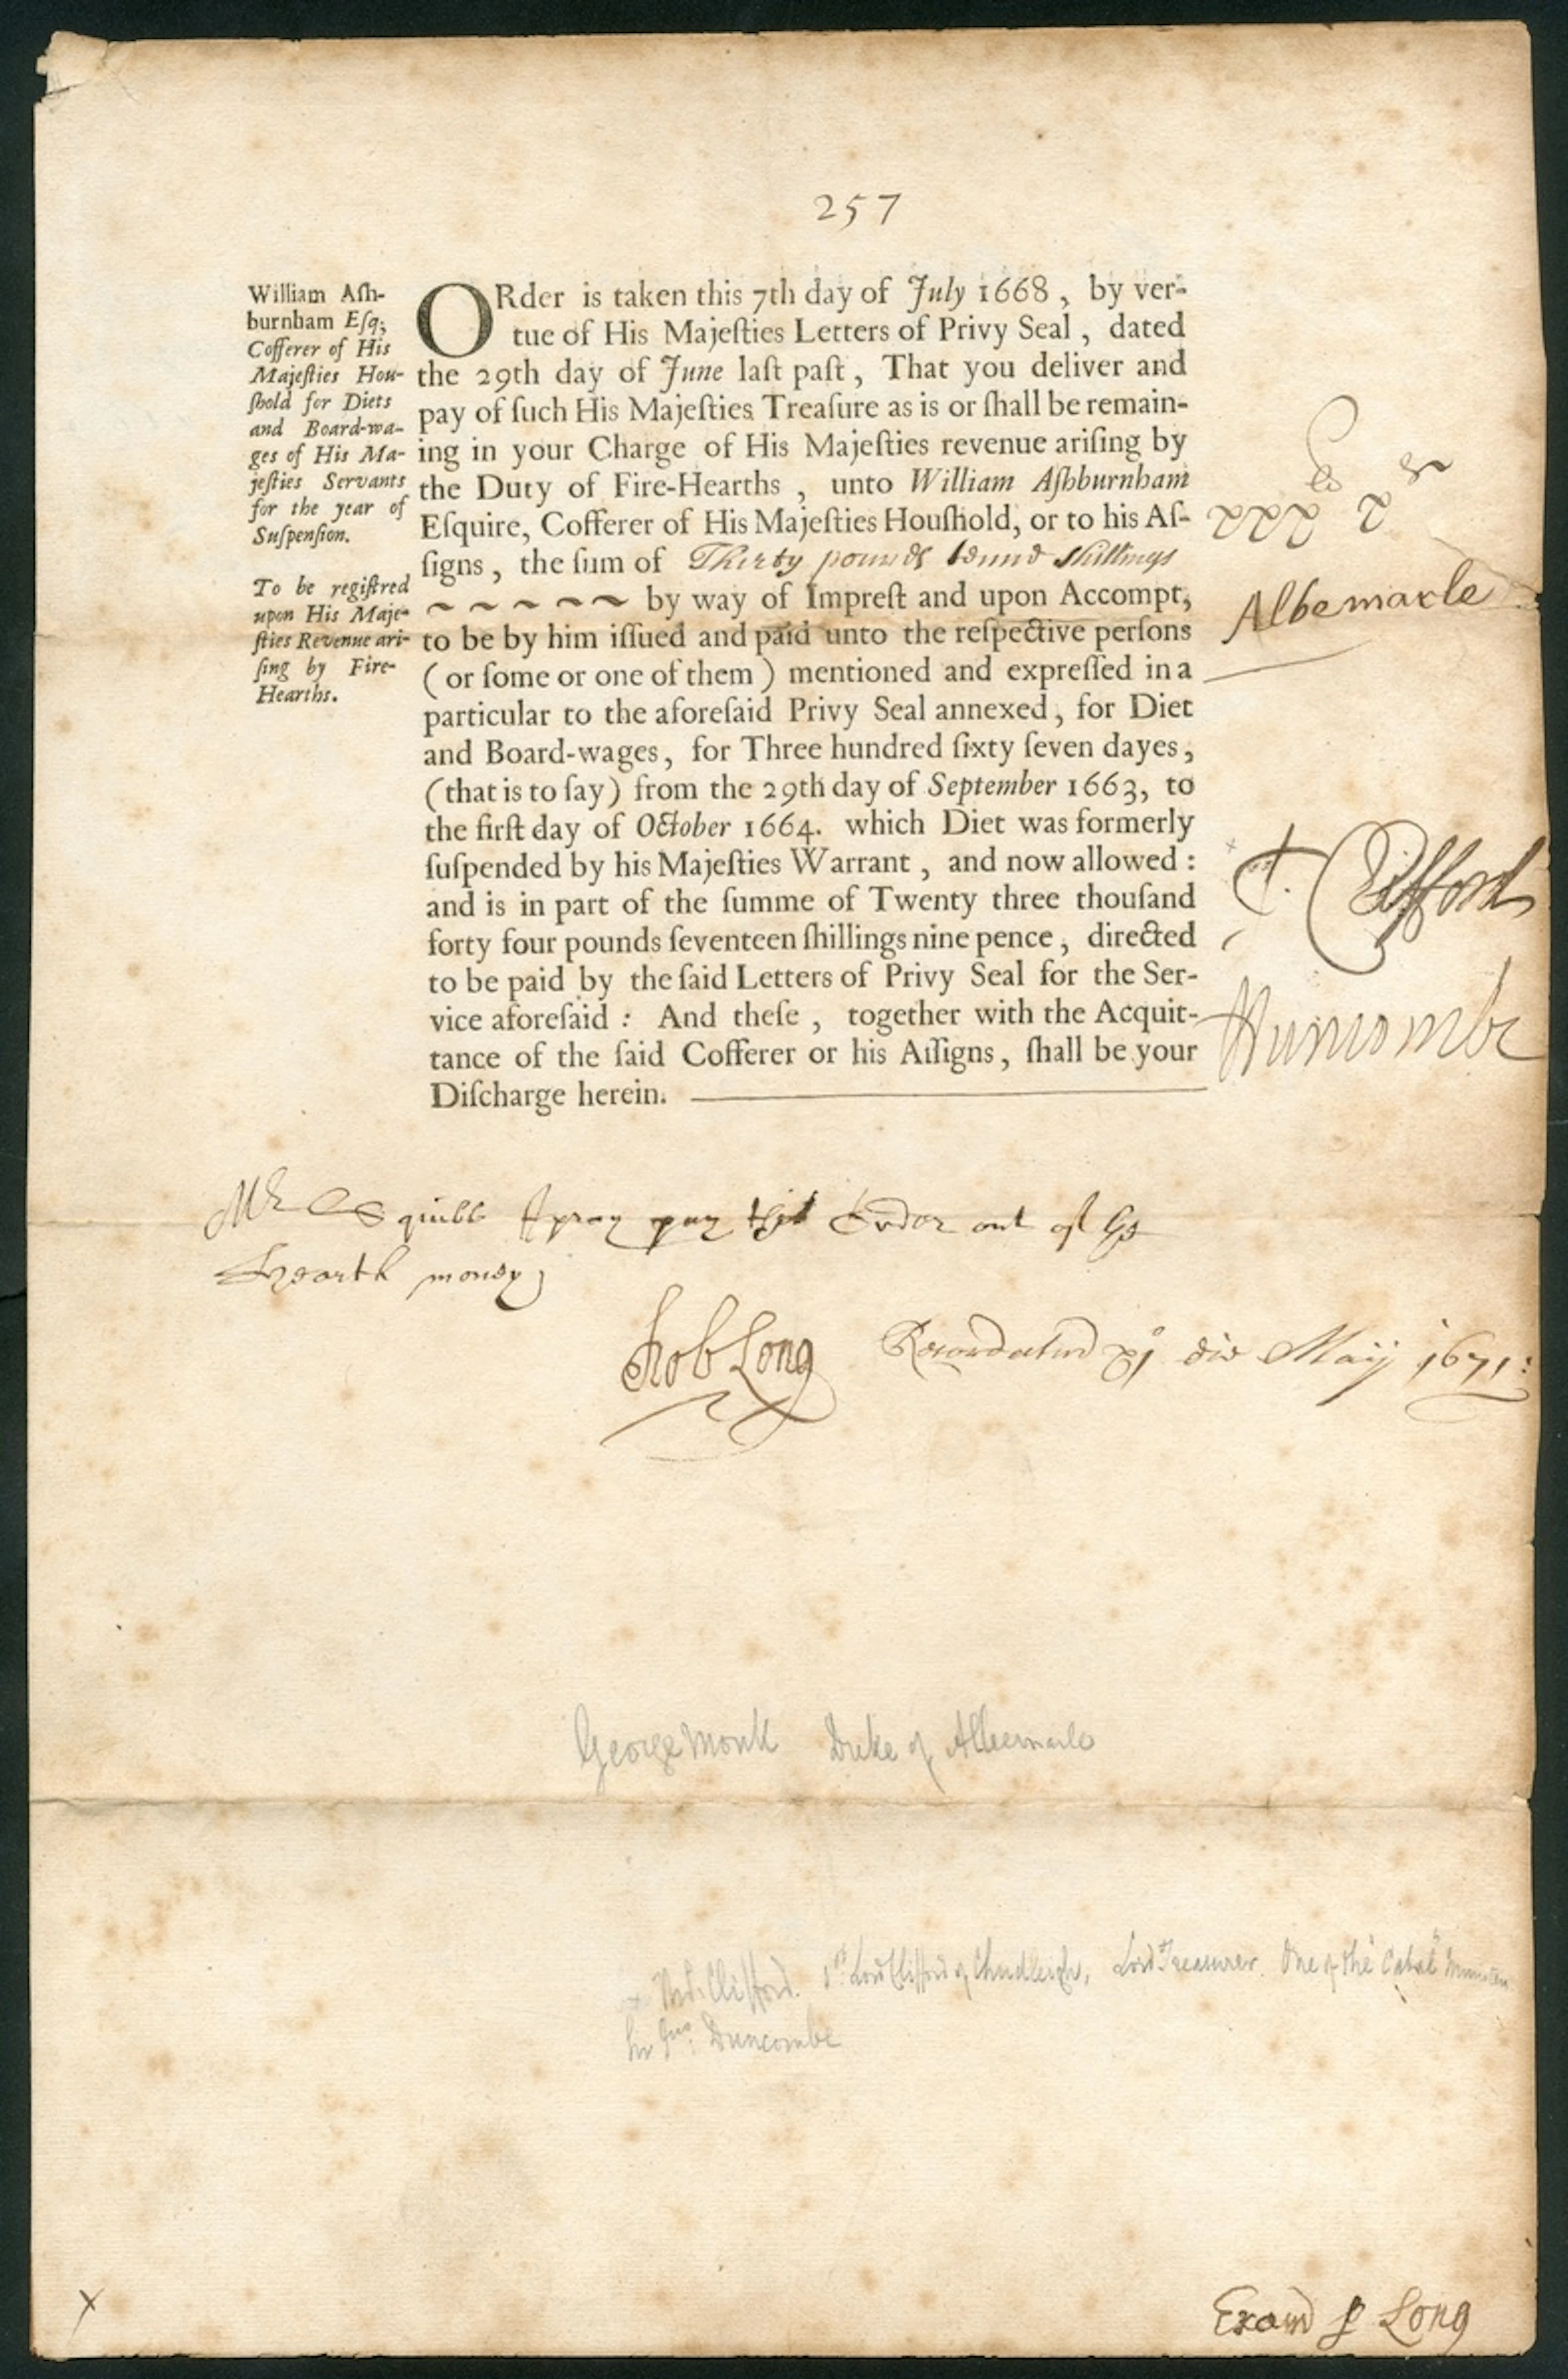 257
William Aſh-
burnham Eſq;
Cofferer of His
Majeſties Hou-
ſhold for Diets
and Board-wa-
ges of His Ma-
jeſties Servants
for the year of
Suſpenſion.
To be regiſtred
upon His Maje-
ſties Revenue ari-
ſing by Fire-
Hearths.
ORder is taken this 7th day of July 1668, by ver-
tue of His Majeſties Letters of Privy Seal, dated
the 29th day of June laſt paſt, That you deliver and
pay of ſuch His Majeſties Treaſure as is or ſhall be remain-
ing in your Charge of His Majeſties revenue ariſing by
the Duty of Fire-Hearths, unto William Aſhburnham
Eſquire, Cofferer of His Majeſties Houſhold, or to his Aſ-
ſigns, the ſum of Thirty pounds tenne shillings
~ ~ ~ ~ ~ by way of Impreſt and upon Accompt,
to be by him iſſued and paid unto the reſpective perſons
(or ſome or one of them) mentioned and expreſſed in a
particular to the aforeſaid Privy Seal annexed, for Diet
and Board-wages, for Three hundred ſixty ſeven dayes,
(that is to ſay) from the 29th day of September 1663, to
the firſt day of October 1664. which Diet was formerly
ſuſpended by his Majeſties Warrant, and now allowed:
and is in part of the ſumme of Twenty three thouſand
forty four pounds ſeventeen ſhillings nine pence, directed
to be paid by the ſaid Letters of Privy Seal for the Ser-
vice aforeſaid: And theſe, together with the Acquit-
tance of the ſaid Cofferer or his Aſſigns, ſhall be your
Diſcharge herein.
Albemarle
T. Clifford
Duncombe
Mr Squibb I pray pay this Order out of ye
Hearth money
Rob Long
Recordatur xjo die Maij 1671:
George Monk Duke of Albemarle
Thos. Clifford. 1st Lord Clifford of Chudleigh, Lord Treasurer. One of the "Cabal"
Sir Jno. Duncombe
x
Examd p Long